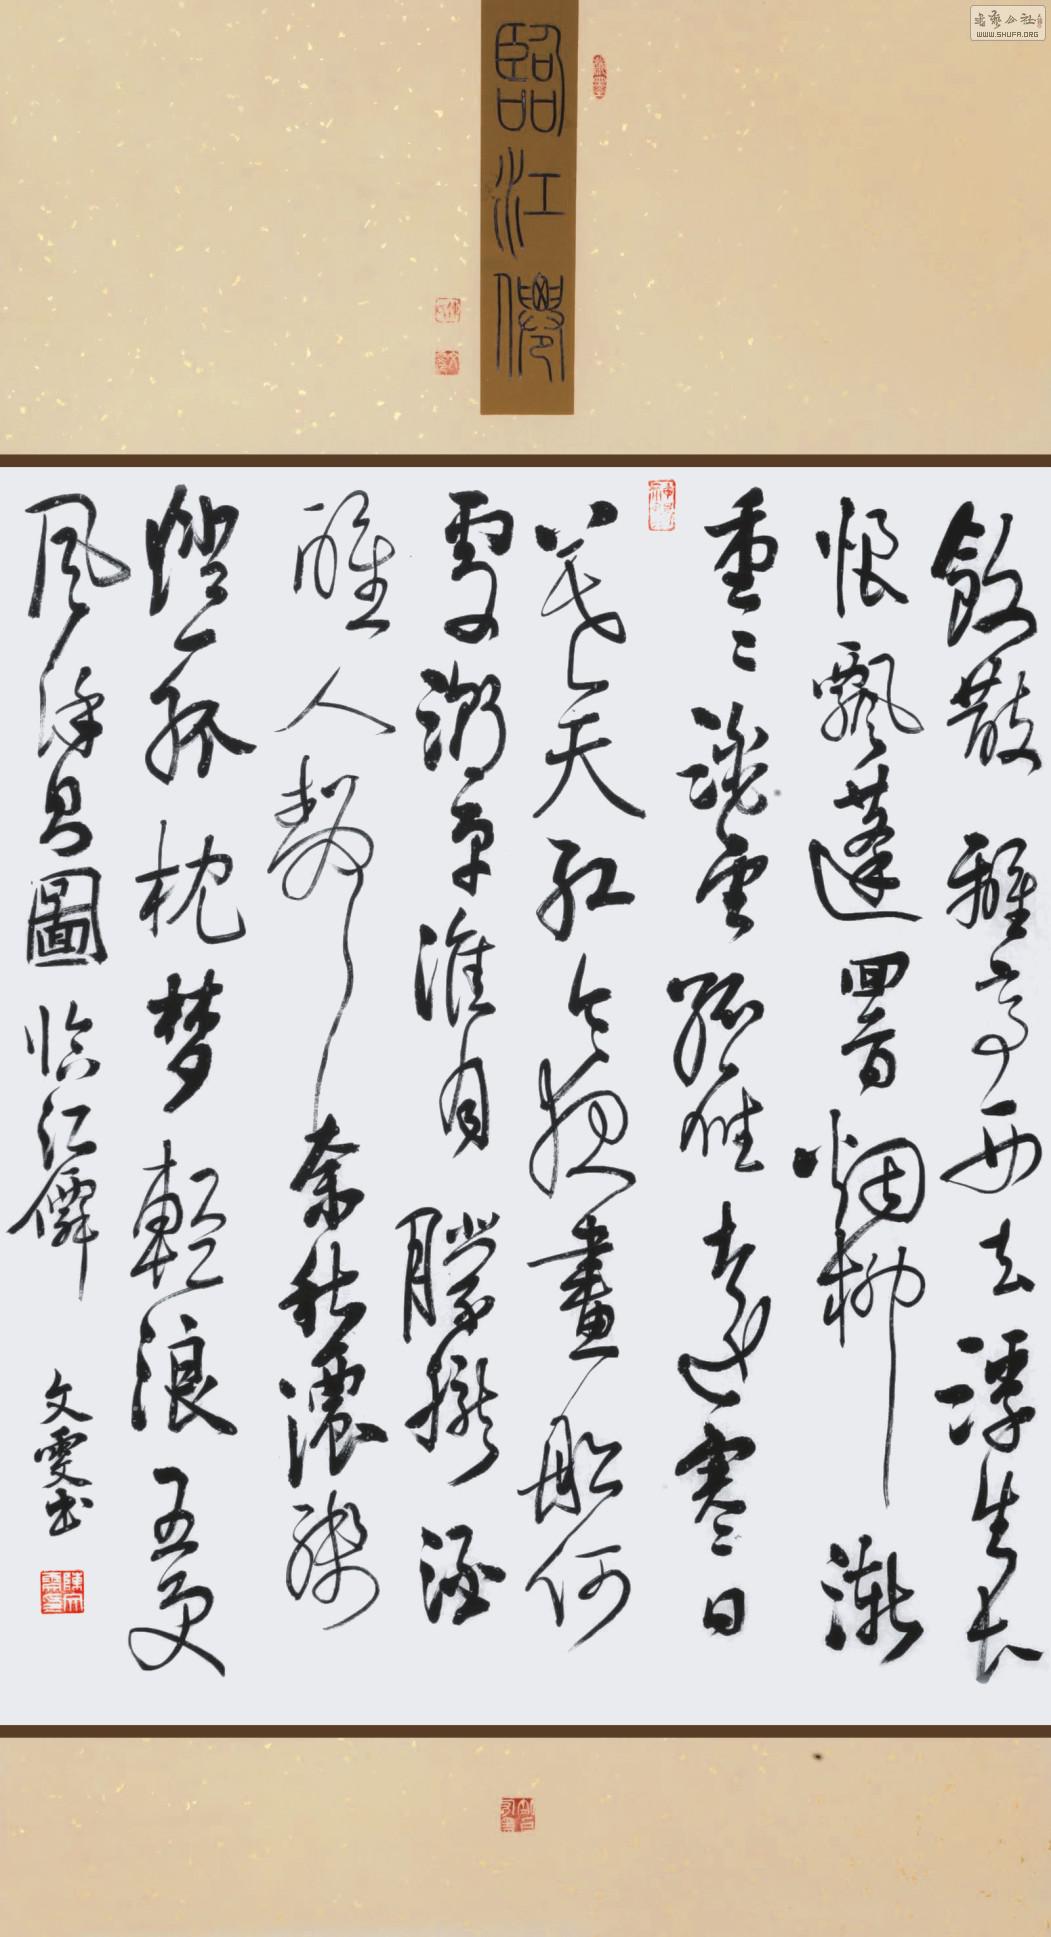 臨江僊
飲散離亭西去浮生長
恨飄蓬回首烟柳漸
重重淡雲孤雁遠寒日
暮天紅今夜畫船何
處潮平淮月朦朧酒
醒人靜奈愁濃殘
燈孤枕夢輕浪五更
風徐昌圖臨江僊 文雯书
WWW.SHUFA.ORG